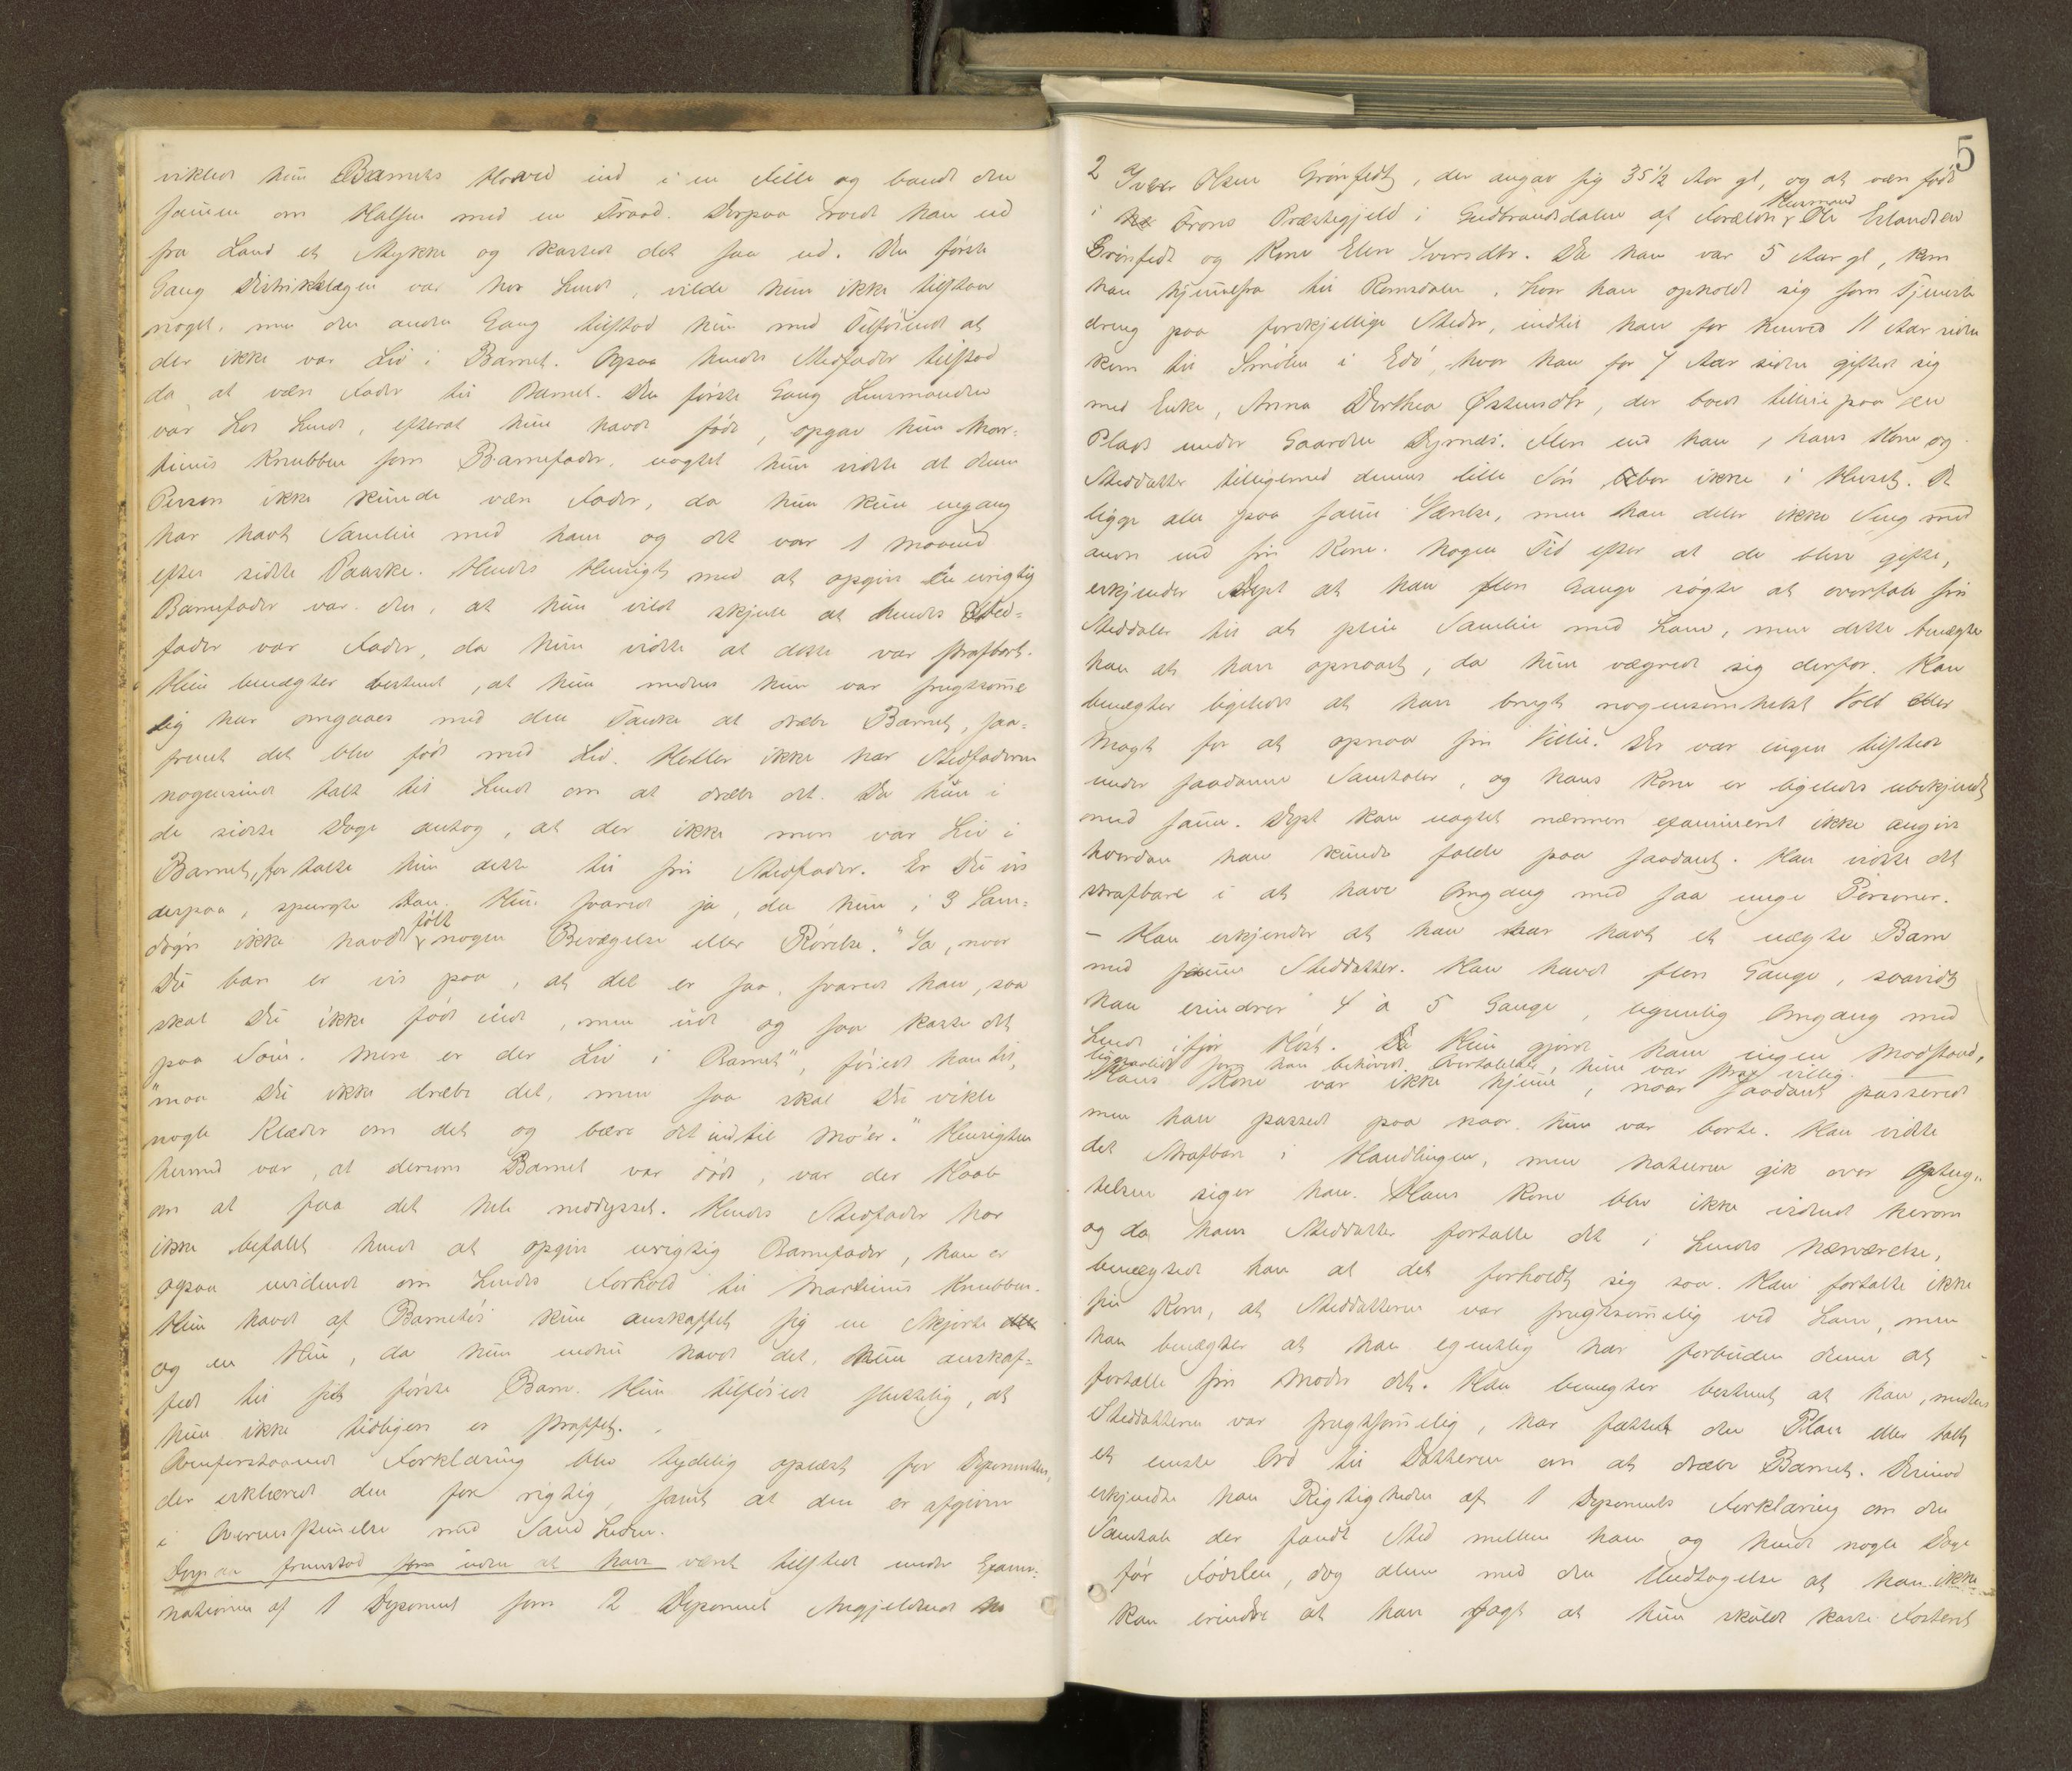 vikled hun Barnets Hoved ind i en Fille og bandt den
sammen om Halsen med en Traad. Derpaa roede han ud
fra Land et Stykke og kasted det saa ud. Den første
Gang Distriktslægen var hos hende, vilde hun ikke tilstaa
noget, men den anden Gang tilstod hun med Tilføiende at
der ikke var Liv i Barnet. Ogsaa hendes Stedfader tilstod
da at være Fader til Barnet. Den første Gang Lensmanden
var hos hende, efterat hun havde født, opgav hun Mar-
tinus Knubben som Barnefader, uagtet hun vidste at denne
Person ikke kunde være Fader, da hun kun engang
har havt Samleie med ham og det var 1 Maaned
efter sidste Paaske. Hendes Hensigt med at opgive en urigtig
Barnefader var den, at hun vilde skjule at hendes Sted-
fader var Fader, da hun vidste at dette var strafbart.
Hun benægter bestemt, at hun medens hun var frugtsomme
lig har omgaaes med den Tanke at dræbe Barnet, saa-
fremt det blev født med Liv. Heller ikke har Stedfaderen
nogensinde talt til hende om at dræbe det. Da hun i
de sidste Dage antog, at der ikke mere var Liv i
Barnet, fortalte hun dette til sin Stedfader. Er Du vis
derpaa, spurgte han. Hun svarede ja, da hun i 3 Sam-
døgn ikke havde følt nogen Bevægelse eller Rørelse. "Ja, naar
Du bare er vis paa, at det er saa, svared han, saa
skal Du ikke føde inde, men ude og saa kaste det
paa Søen. Men er der Liv i Barnet", føied han til,
"maa Du ikke dræbe det, men saa skal Du vikle
nogle Klæder om det og bære det ind til Mo'er." Hensigten
hermed var, at dersom Barnet var dødt, var der Haab
om at faa det hele neddysset. Hendes Stedfader har
ikke befalet hende at opgive urigtig Barnefader, han er
ogsaa uvidende om hendes Forhold til Martinus Knubben.
Hun havde af Barnetøi kun anskaffet sig en Skjorte
og en Hue, da hun endnu havde det, hun anskaf-
fede til sit første Barn. Hun tilføied sluttelig, at
hun ikke tidligere er straffet.
Ovenforstaaende Forklaring blev tydelig oplæst for Deponenten,
der erklæred den for rigtig, samt at den er afgiven
i Overensstemmelse med Sandheden.
Derpaa fremstod som uden at have været tilstede under Exami-
nationen af 1 Deponent som 2 Deponent Angjeldende
5
2 Iver Olsen Grønfedt, der angav sig 35 1/2 Aar gl, og at være født
i Frons Præstegjeld i Gudbrandsdalen af Forældre Husmand Ole Erlandsen
Grønfedt og Kone Elen Iversdtr. Da han var 5 Aar gl, kom
han hjemmefra til Romsdalen, hvor han opholdt sig som Tjeneste
dreng paa forskjellige Steder, indtil han for henved 11 Aar siden
kom til Smølen i Edø, hvor han for 7 Aar siden gifted sig
med Enke, Anna Dorthea Østensdtr, der boede tilleie paa en
Plads under Gaarden Dyrnæs. Flere end han, hans Kone og
Steddatter tilligemed dennes lille Søn bor ikke i Huset. De
ligge alle paa samme Værelse, men han deler ikke Seng med
anden end sin Kone. Nogen Tid efter at de blev gifte,
erkjender Dept at han flere Gange søgte at overtale sin
Steddatter til at pleie Samleie med ham, men dette benægter
han at have opnaaet, da hun vægred sig derfor. Han
benægter ligeledes at have brugt nogensomhelst Vold eller
Magt for at opnaa sin Villie. Der var ingen tilstede
under saadanne Samtaler, og hans Kone er ligeledes ubekjendt
med samme. Dept kan uagtet nærmere examineret ikke angive
hvordan han kunde falde paa saadant. Han vidste det
strafbare i at have Omgang med saa unge Personer.
- Han erkjender at han har havt et uægte Barn
med samme Steddatter. Han havde flere Gange, saavidt
han erindrer 4 à 5 Gange, legemlig Omgang med
hende ifjor Høst. Hun gjorde ham ingen Modstand,
ligesaalidt som han behøved Overtalelser, hun var strax villig.
Hans Kone var ikke hjemme, naar saadant passered
men han passed paa naar hun var borte. Han vidste
det strafbare i Handlingen, men Naturen gik over Optug-
telsen siger han. Hans Kone blev ikke vidende herom
og da hans Steddatter fortalte det i hendes Nærværelse,
benægtede han at det forholdt sig saa. Han fortalte ikke
sin Kone, at Steddatteren var frugtsommelig ved ham, men
han benægter at han egentlig har forbuden denne at
fortælle sin Moder det. Han benægter bestemt at han, medens
Steddatteren var frugtsommelig, har fattet den Plan eller talt
et eneste Ord til Datteren om at dræbe Barnet. Derimod
erkjendte han Rigtigheden af 1 Deponents Forklaring om den
Samtale der fandt Sted mellem ham og hende nogle Dage
før Fødslen, dog alene med den Undtagelse at han ikke
kan erindre at have sagt at hun skulde kaste Fosteret